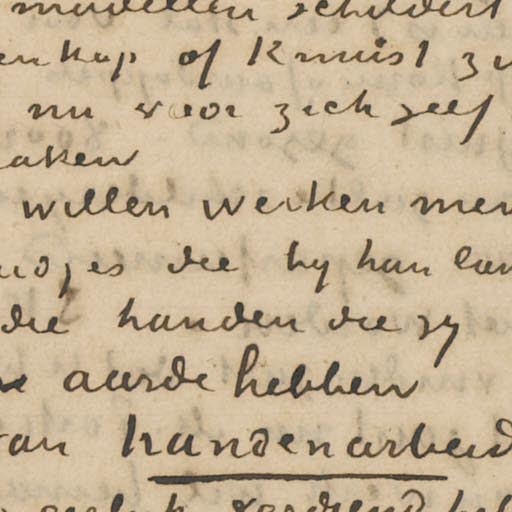 modellen schildert
enkop of knuist zi
nu voor zich zelf
aken
willen werken men
udjes die hy hun lan
die handen die zy
aarde hebben
van handenarbeid
eerlyk verdiend heb